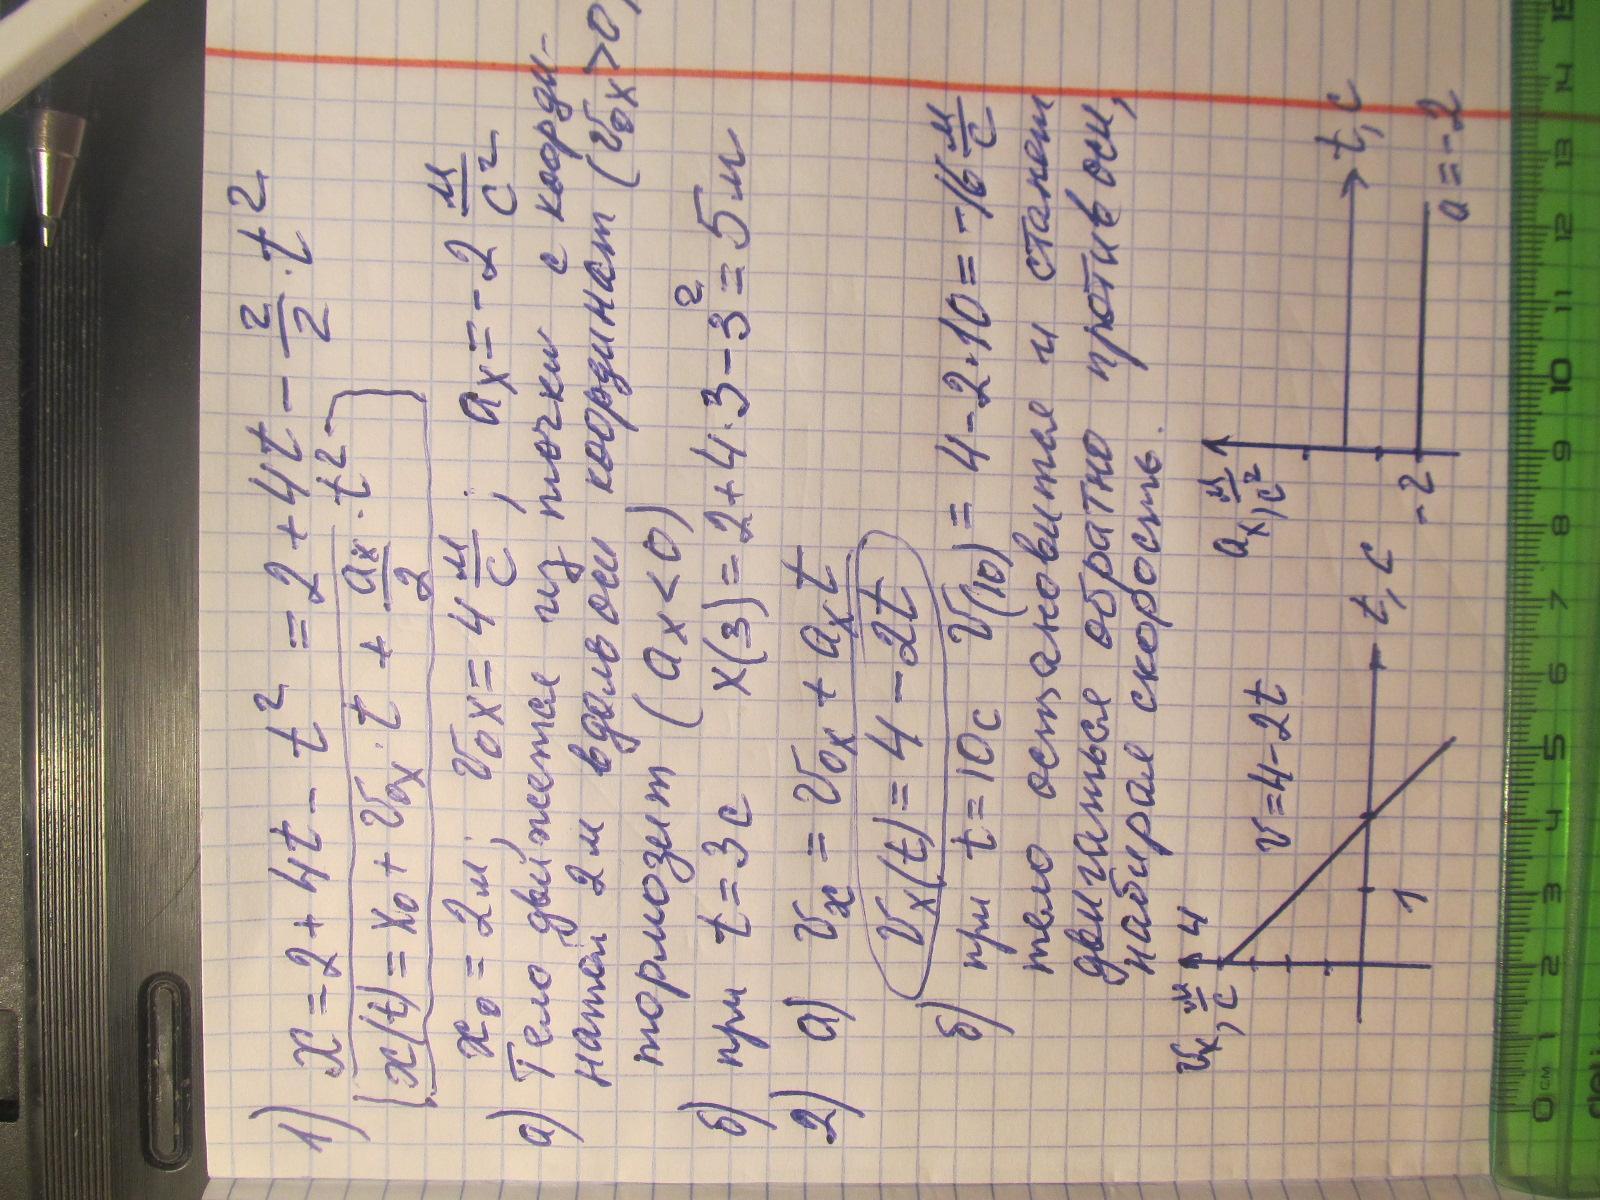 1) x = 2 + 4t - t² = 2 + 4t - 2/2 · t²
x(t) = x₀ + v₀ₓ · t + aₓ/2 · t²
x₀ = 2 м; v₀ₓ = 4 м/с; aₓ = -2 м/с²
а) Тело движется из точки с коорди-
натой 2 м вдоль оси координат (v₀ₓ > 0)
тормозит (aₓ < 0)
б) при t = 3 с x(3) = 2 + 4 · 3 - 3² = 5 м
2) а) vₓ = v₀ₓ + aₓt
vₓ(t) = 4 - 2t
б) при t = 10 с v(10) = 4 - 2 · 10 = -16 м/с
тело остановится и станет
двигаться обратно против оси,
набирая скорость.
vₓ, м/с 4
v = 4 - 2t
1
t, с
aₓ, м/с²
t, с
-2
a = -2
0 см 1 2 3 4 5 6 7 8 9 10 11 12 13 14 15